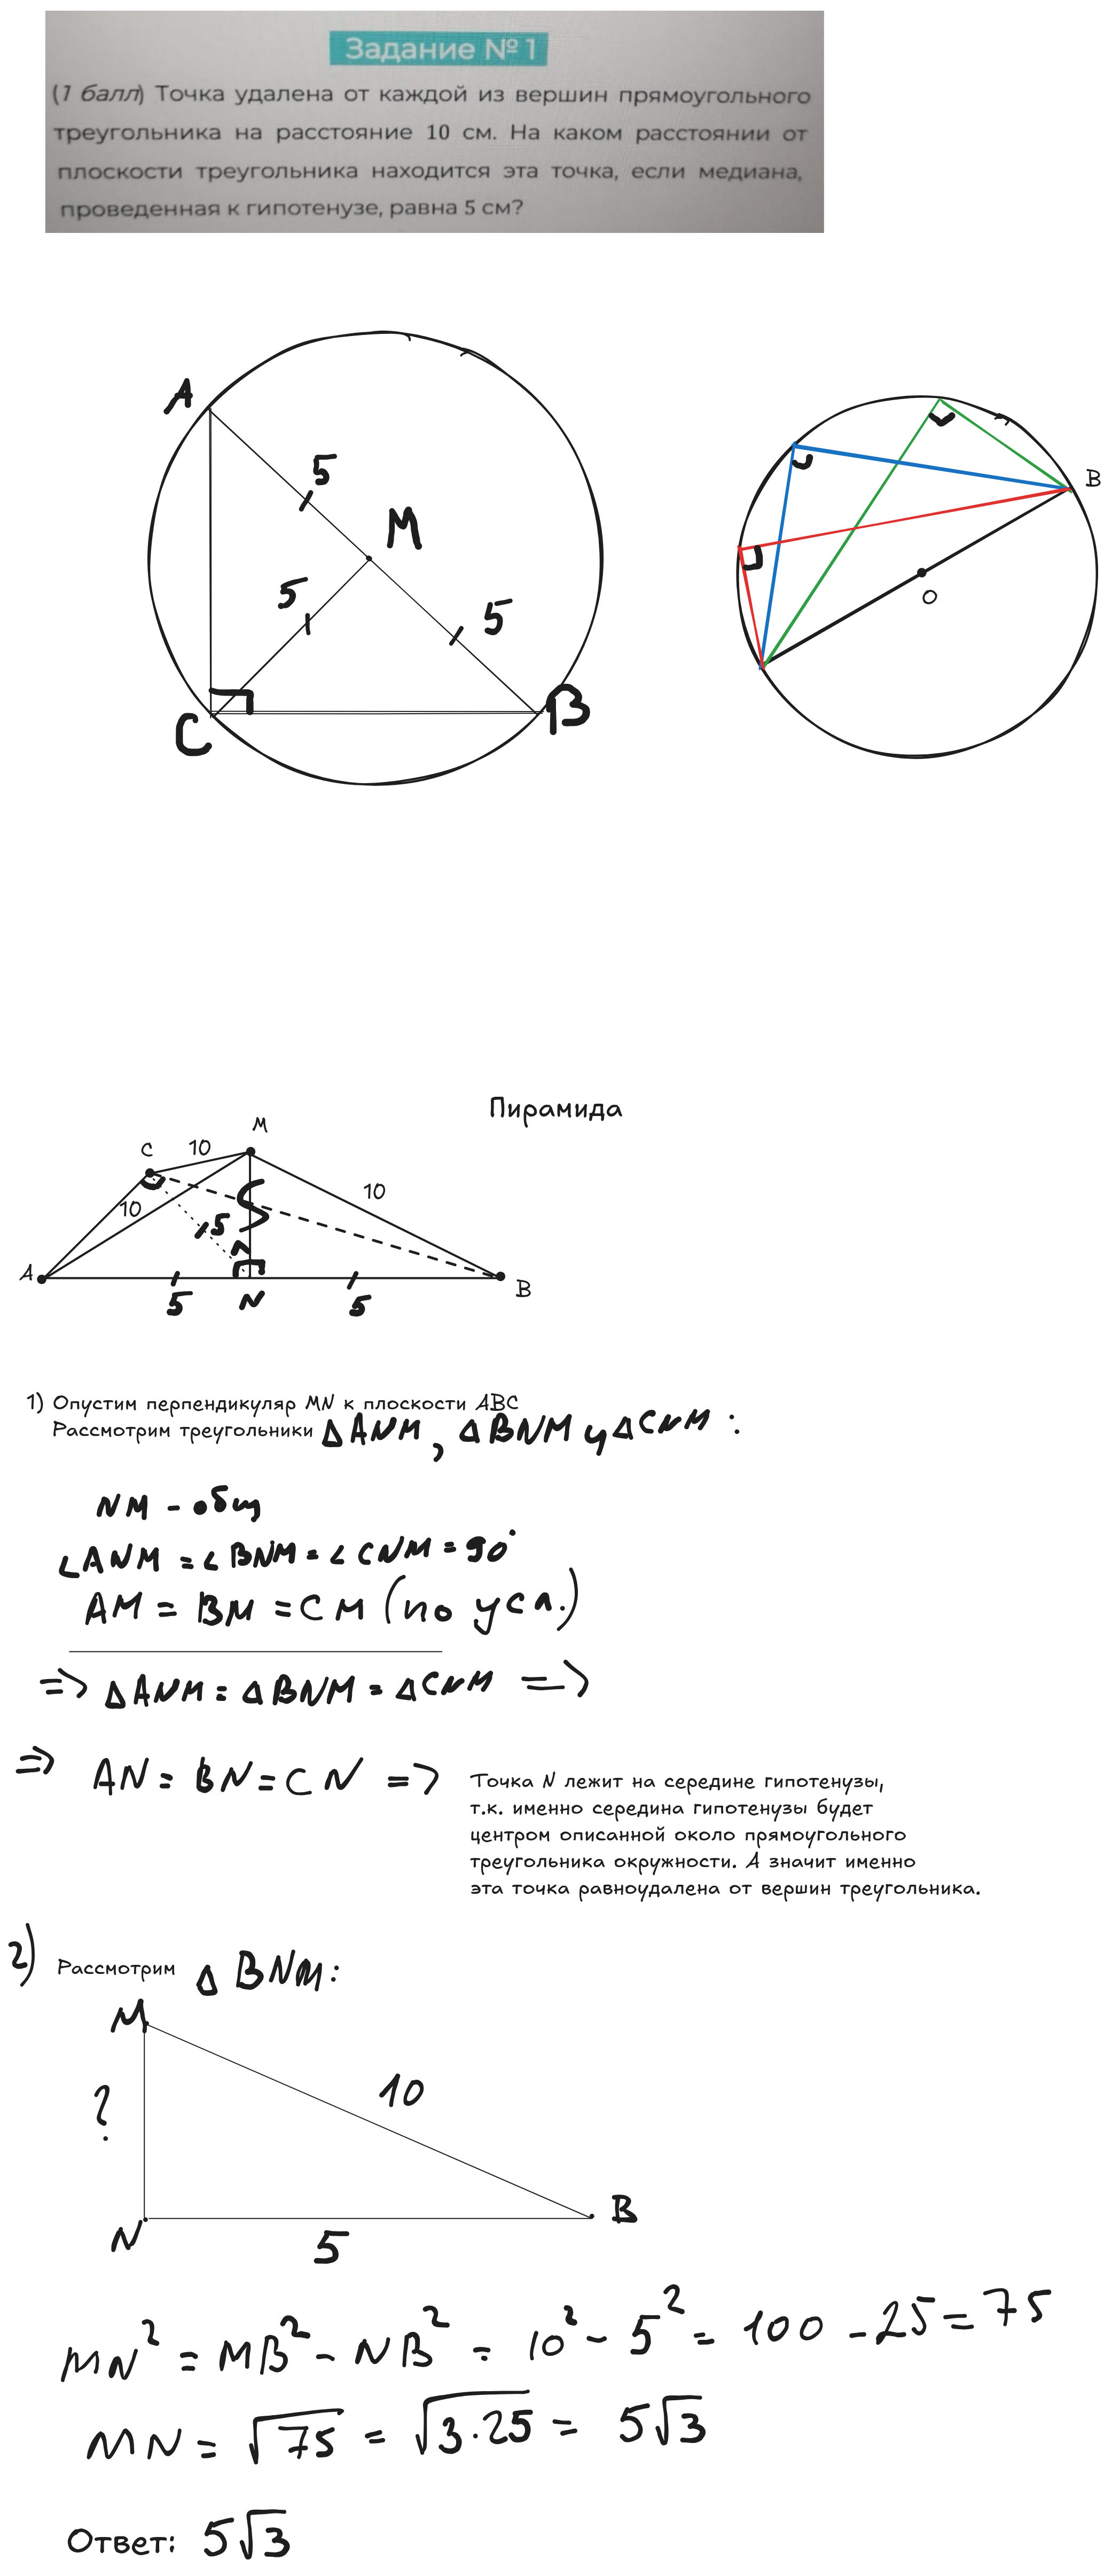 Задание № 1
(1 балл) Точка удалена от каждой из вершин прямоугольного
треугольника на расстояние 10 см. На каком расстоянии от
плоскости треугольника находится эта точка, если медиана,
проведенная к гипотенузе, равна 5 см?
A
5
M
5
5
C
B
B
O
Пирамида
M
C
10
10
10
5
A
5
N
5
B
1) Опустим перпендикуляр MN к плоскости ABC
Рассмотрим треугольники ΔANM, ΔBNM и ΔCNM :
NM - общ
∠ANM = ∠BNM = ∠CNM = 90°
AM = BM = CM (по усл.)
=> ΔANM = ΔBNM = ΔCNM =>
=> AN = BN = CN =>
Точка N лежит на середине гипотенузы,
т.к. именно середина гипотенузы будет
центром описанной около прямоугольного
треугольника окружности. А значит именно
эта точка равноудалена от вершин треугольника.
2) Рассмотрим Δ BNM:
M
?
10
N
5
B
MN² = MB² - NB² = 10² - 5² = 100 - 25 = 75
MN = √75 = √3·25 = 5√3
Ответ: 5√3